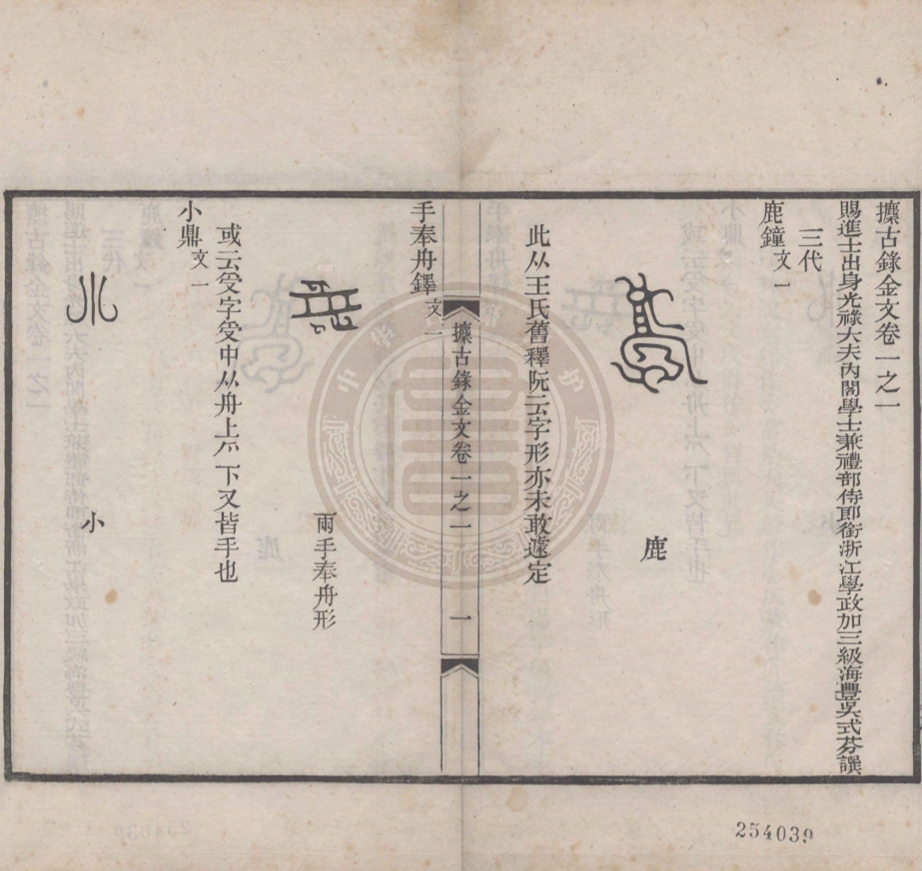 攈古錄金文卷一之一
賜進士出身光祿大夫內閣學士兼禮部侍郎銜浙江學政加三級海豐吳式芬譔
三代
鹿鐘文一
鹿
此从王氏舊釋阮云字形亦未敢遽定
攈古錄金文卷一之一
一
手奉舟鐸文一
兩手奉舟形
或云受字受中从舟上爫下又皆手也
小鼎文一
小
254039